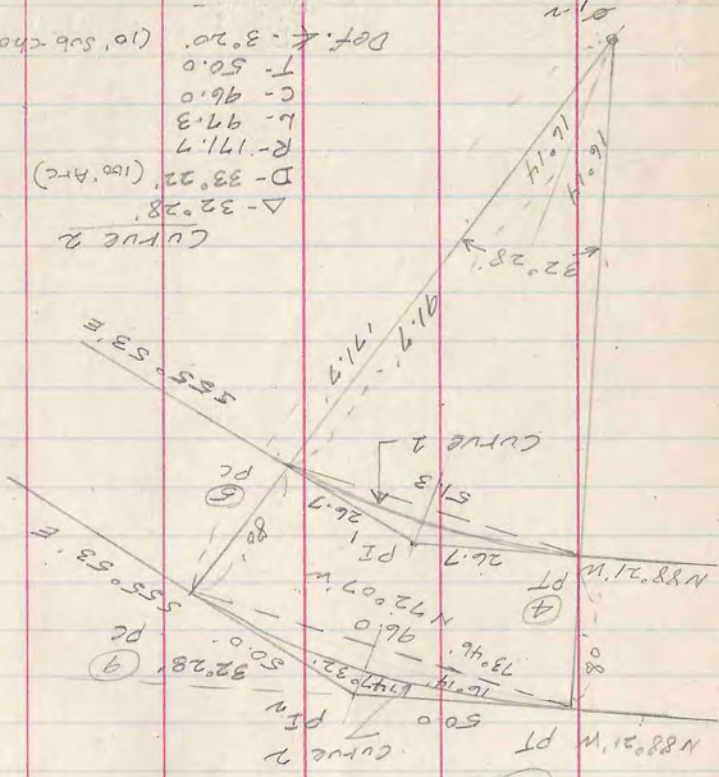 N88°21'W PT
Curve 2
50.0
PI2
16°14'
147°32'
73°46'
32°28'
50.0'
9
PC
96.0
N72°07'W
S55°53'E
80
4
PT
N88°21'W
26.7
PI
26.7
80
51.3
5
PC
Curve 2
S55°53'E
171.7'
91.7'
32°28'
16°14
16°14
Curve 2
Δ- 32°28'
D- 33°22' (100' Arc)
R- 171.7
L- 97.3
C- 96.0
T- 50.0
Def. ∠ - 3°20' (10' Sub-cho